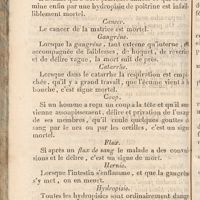 mine enfin par une hydropisie de poitrine est infail-
liblement mortel.
Cancer.
Le cancer de la matrice est mortel.
Gangrène.
Lorsque la gangrène, tant externe qu'interne, e
accompagnée de faiblesses, de hoquet, de rêverie
et de délire vague, la mort suit de près.
Catarrhe.
Lorsque dans le catarrhe la respiration est emp
chée, qu'il y a grand travail, que l'écume vient à
bouche, c'est un signe mortel.
Coup.
Si un homme a reçu un coup à la tête et qu'il su
vienne assoupissement, délire et privation de l'usag
de ses membres, qu'il coule quelques gouttes d
sang par le nez ou par les oreilles, c'est un sign
mortel.
Flux.
Si après un flux de sang le malade a des convul
sions et le délire, c'est un signe de mort.
Hernie.
Lorsque l'intestin s'enflamme, et que la gangrèn
s'y met, on en meurt.
Hydropisie.
Toutes les hydropisies sont ordinairement dang